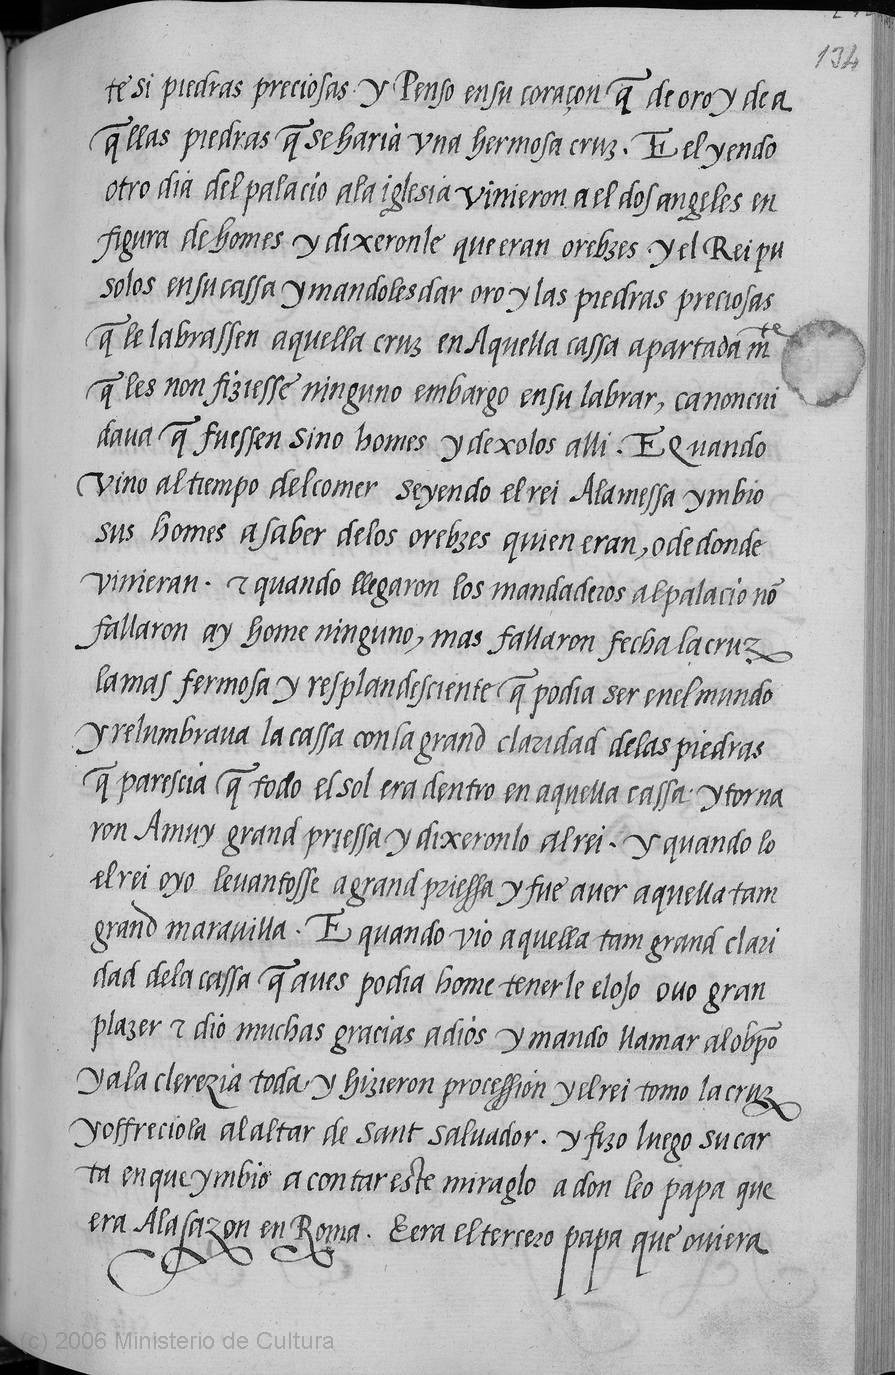 134
te si piedras preciosas. y Penso en su coraçon q̃ de oro y de a
q̃llas piedras q̃ se haria vna hermosa cruz. E el yendo
otro dia del palacio ala iglesia vinieron a el dos angeles en
figura de homes y dixeronle que eran orebzes y el Rei pu
solos en su cassa y mandoles dar oro y las piedras preciosas
q̃ le labrassen aquella cruz en Aquella cassa apartada m̃te
q̃ les non fiziesse ninguno embargo en su labrar, ca non cui
daua q̃ fuessen sino homes y dexolos alli. E Quando
vino al tiempo del comer seyendo el rei Ala messa ymbio
sus homes a saber delos orebzes quien eran, o de donde
vinieran. & quando llegaron los mandaderos al palacio nõ
fallaron ay home ninguno, mas fallaron fecha la cruz
la mas fermosa y resplandesciente q̃ podia ser en el mundo
y relumbraua la cassa con la grand claridad delas piedras
q̃ parescia q̃ todo el sol era dentro en aquella cassa. y torna
ron A muy grand priessa y dixeronlo al rei. y quando lo
el rei oyo leuantosse a grand priessa y fue a uer aquella tam
grand marauilla. E quando vio aquella tam grand clari
dad dela cassa q̃ aues podia home tenerle el ojo ouo gran
plazer & dio muchas gracias a dios y mando llamar al obp̃o
y ala clerezia toda, y hizieron procession y el rei tomo la cruz
y offreciola al altar de Sant Saluador. y fizo luego su car
ta en que ymbio a contar este miraglo a don leo papa que
era Ala sazon en Roma. E era el tercero papa que ouiera
(c) 2006 Ministerio de Cultura